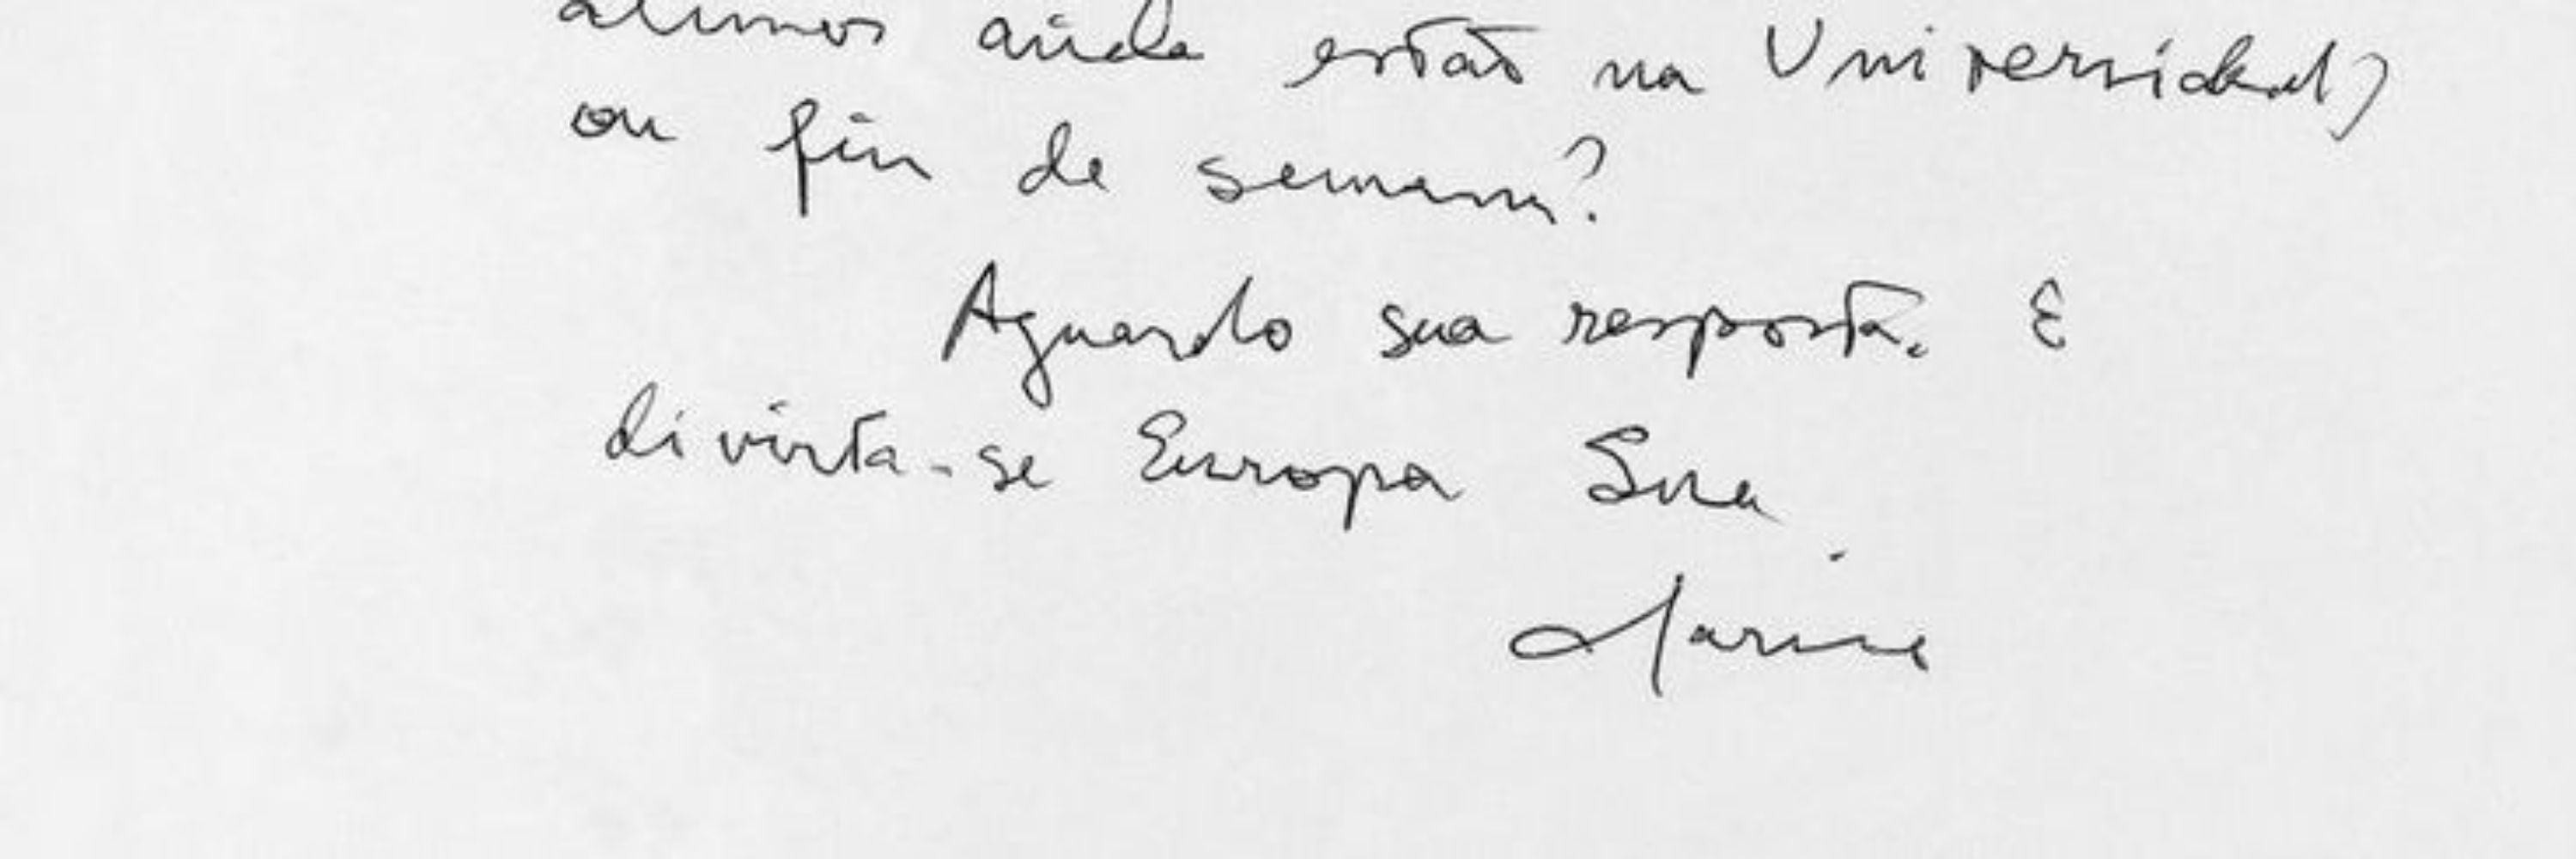 alunos ainda estão na Universidade)
ou fim de semana?
Aguardo sua resposta. E
divirta-se Europa Sua
Marise